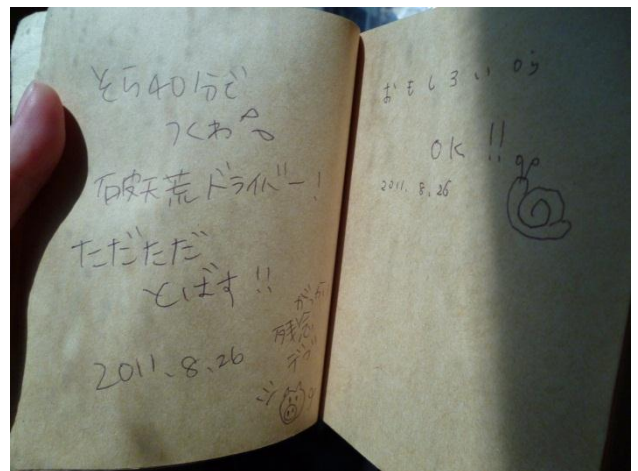 そら40分で
つくわ。
破天荒ドライバー!
ただただ
とばす!!
2011.8.26
残念
デブ
おもしろいから
OK!!
2011.8.26